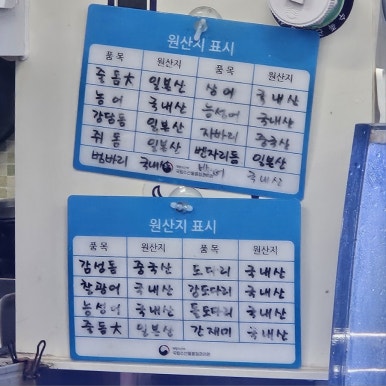 원산지 표시
품 목 원산지 품 목 원산지
줄돔大 일본산 상어 국내산
농어 국내산 농성어 국내산
강담돔 일본산 자바리 중국산
쥐돔 일본산 벤자리돔 일본산
범바리 국내산 국내산
국립수산물품질관리원
원산지 표시
품 목 원산지 품 목 원산지
감성돔 중국산 도다리 국내산
찰광어 국내산 강도다리 국내산
농성어 국내산 돌도다리 국내산
줄돔大 일본산 간재미 국내산
국립수산물품질관리원